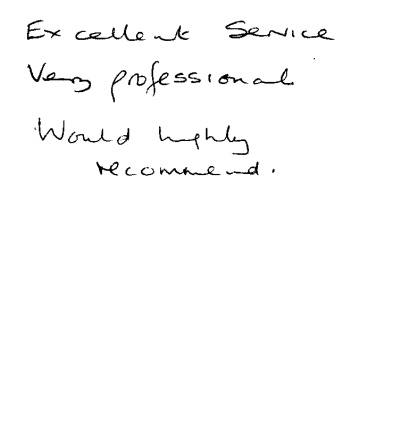 Excellent Service
Very professional
Would highly
recommend.